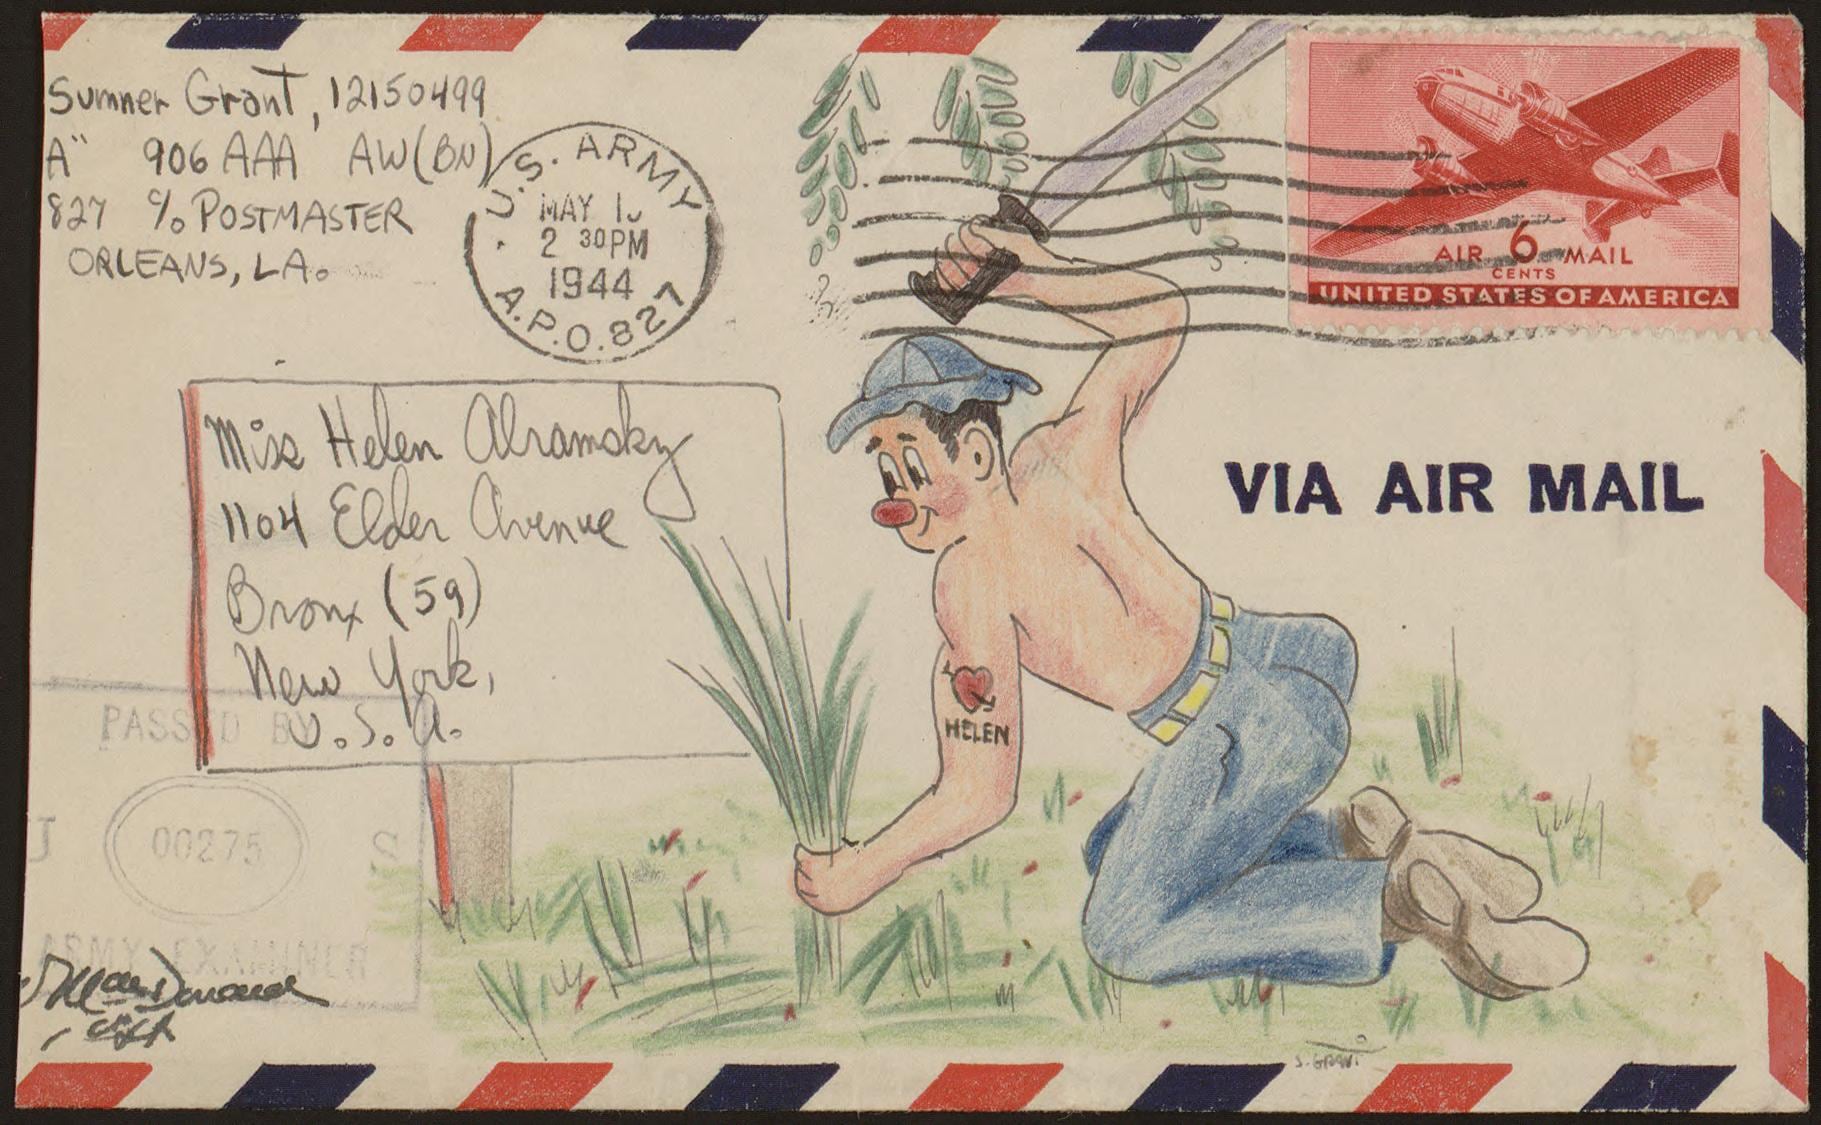 Sumner Grant, 12150499
A" 906 AAA AW(BN)
827 c/o POSTMASTER
ORLEANS, LA.
U.S. ARMY
MAY 1
2 30 PM
1944
A.P.O. 827
AIR 6 MAIL
CENTS
UNITED STATES OF AMERICA
Miss Helen Abramsky
1104 Elder Avenue
Bronx (59)
New York,
U.S.A.
VIA AIR MAIL
HELEN
PASSED BY
00275 S
ARMY EXAMINER
S. GRANT